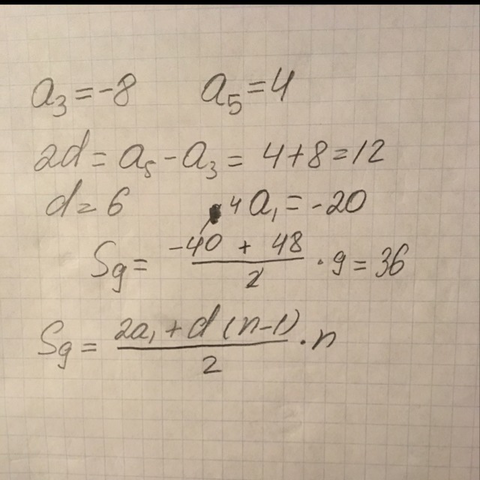 a₃ = -8 a₅ = 4
2d = a₅ - a₃ = 4 + 8 = 12
d = 6 4 a₁ = -20
S₉ = (-40 + 48)/2 · 9 = 36
S₉ = (2a₁ + d(n-1))/2 · n